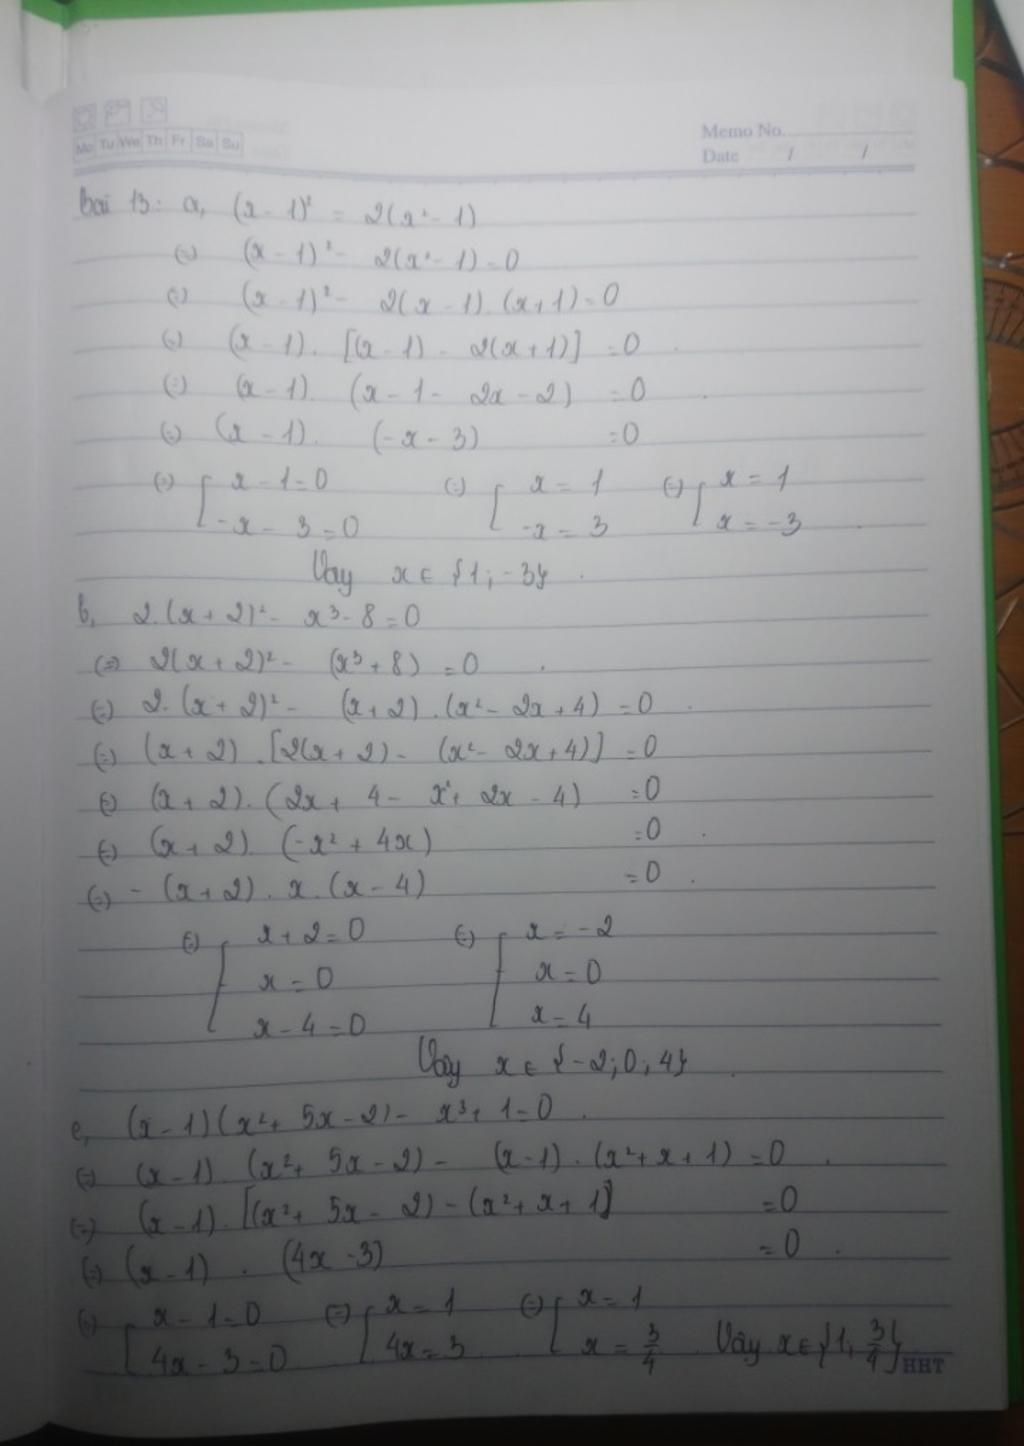 Mo Tu We Th Fr Sa Su
Memo No.
Date / /
bài 13: a, (x - 1)² = 2(x² - 1)
(=) (x - 1)² - 2(x² - 1) = 0
(=) (x - 1)² - 2(x - 1). (x + 1) = 0
(=) (x - 1). [(x - 1) - 2(x + 1)] = 0
(=) (x - 1). (x - 1 - 2x - 2) = 0
(=) (x - 1). (-x - 3) = 0
(=) [ x - 1 = 0 (=) [ x = 1 (=) [ x = 1
-x - 3 = 0 -x = 3 x = -3
Vậy x ∈ {1; -3}.
b, 2.(x + 2)² - x³ - 8 = 0
(=) 2(x + 2)² - (x³ + 8) = 0
(=) 2.(x + 2)² - (x + 2).(x² - 2x + 4) = 0
(=) (x + 2).[2(x + 2) - (x² - 2x + 4)] = 0
(=) (x + 2).(2x + 4 - x² + 2x - 4) = 0
(=) (x + 2). (-x² + 4x) = 0
(=) - (x + 2). x. (x - 4) = 0
(=) [ x + 2 = 0 (=) [ x = -2
x = 0 x = 0
x - 4 = 0 x = 4
Vậy x ∈ {-2; 0; 4}
c, (x - 1)(x² + 5x - 2) - x³ + 1 = 0
(=) (x - 1). (x² + 5x - 2) - (x - 1). (x² + x + 1) = 0
(=) (x - 1). [(x² + 5x - 2) - (x² + x + 1] = 0
(=) (x - 1). (4x - 3) = 0
(=) [ x - 1 = 0 (=) [ x = 1 (=) [ x = 1
4x - 3 = 0 4x = 3 x = 3/4 Vậy x ∈ {1; 3/4}
HHT